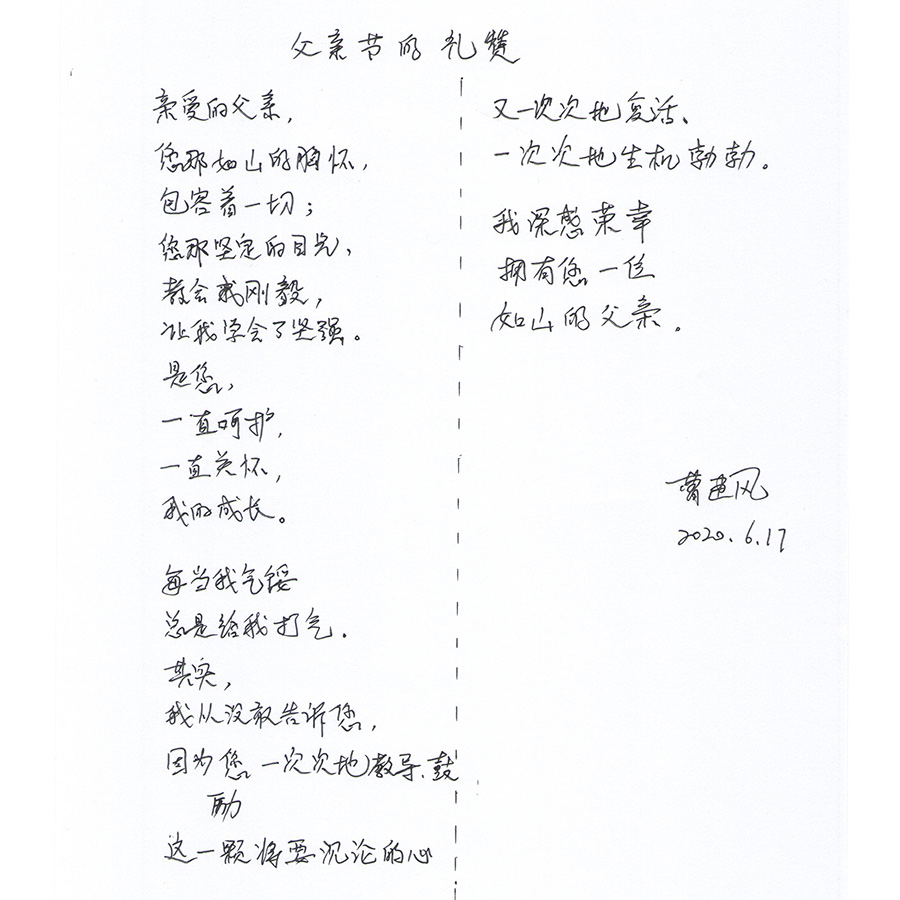 父亲节的礼赞
亲爱的父亲，
您那如山的胸怀，
包容着一切；
您那坚定的目光，
教会我刚毅，
让我学会了坚强。
是您，
一直呵护，
一直关怀，
我的成长。
每当我气馁
总是给我打气．
其实，
我从没敢告诉您，
因为您一次次地教导、鼓
励
这一颗将要沉沦的心
又一次次地复活、
一次次地生机勃勃。
我深感荣幸
拥有您一位
如山的父亲．
曹建风
2020.6.17